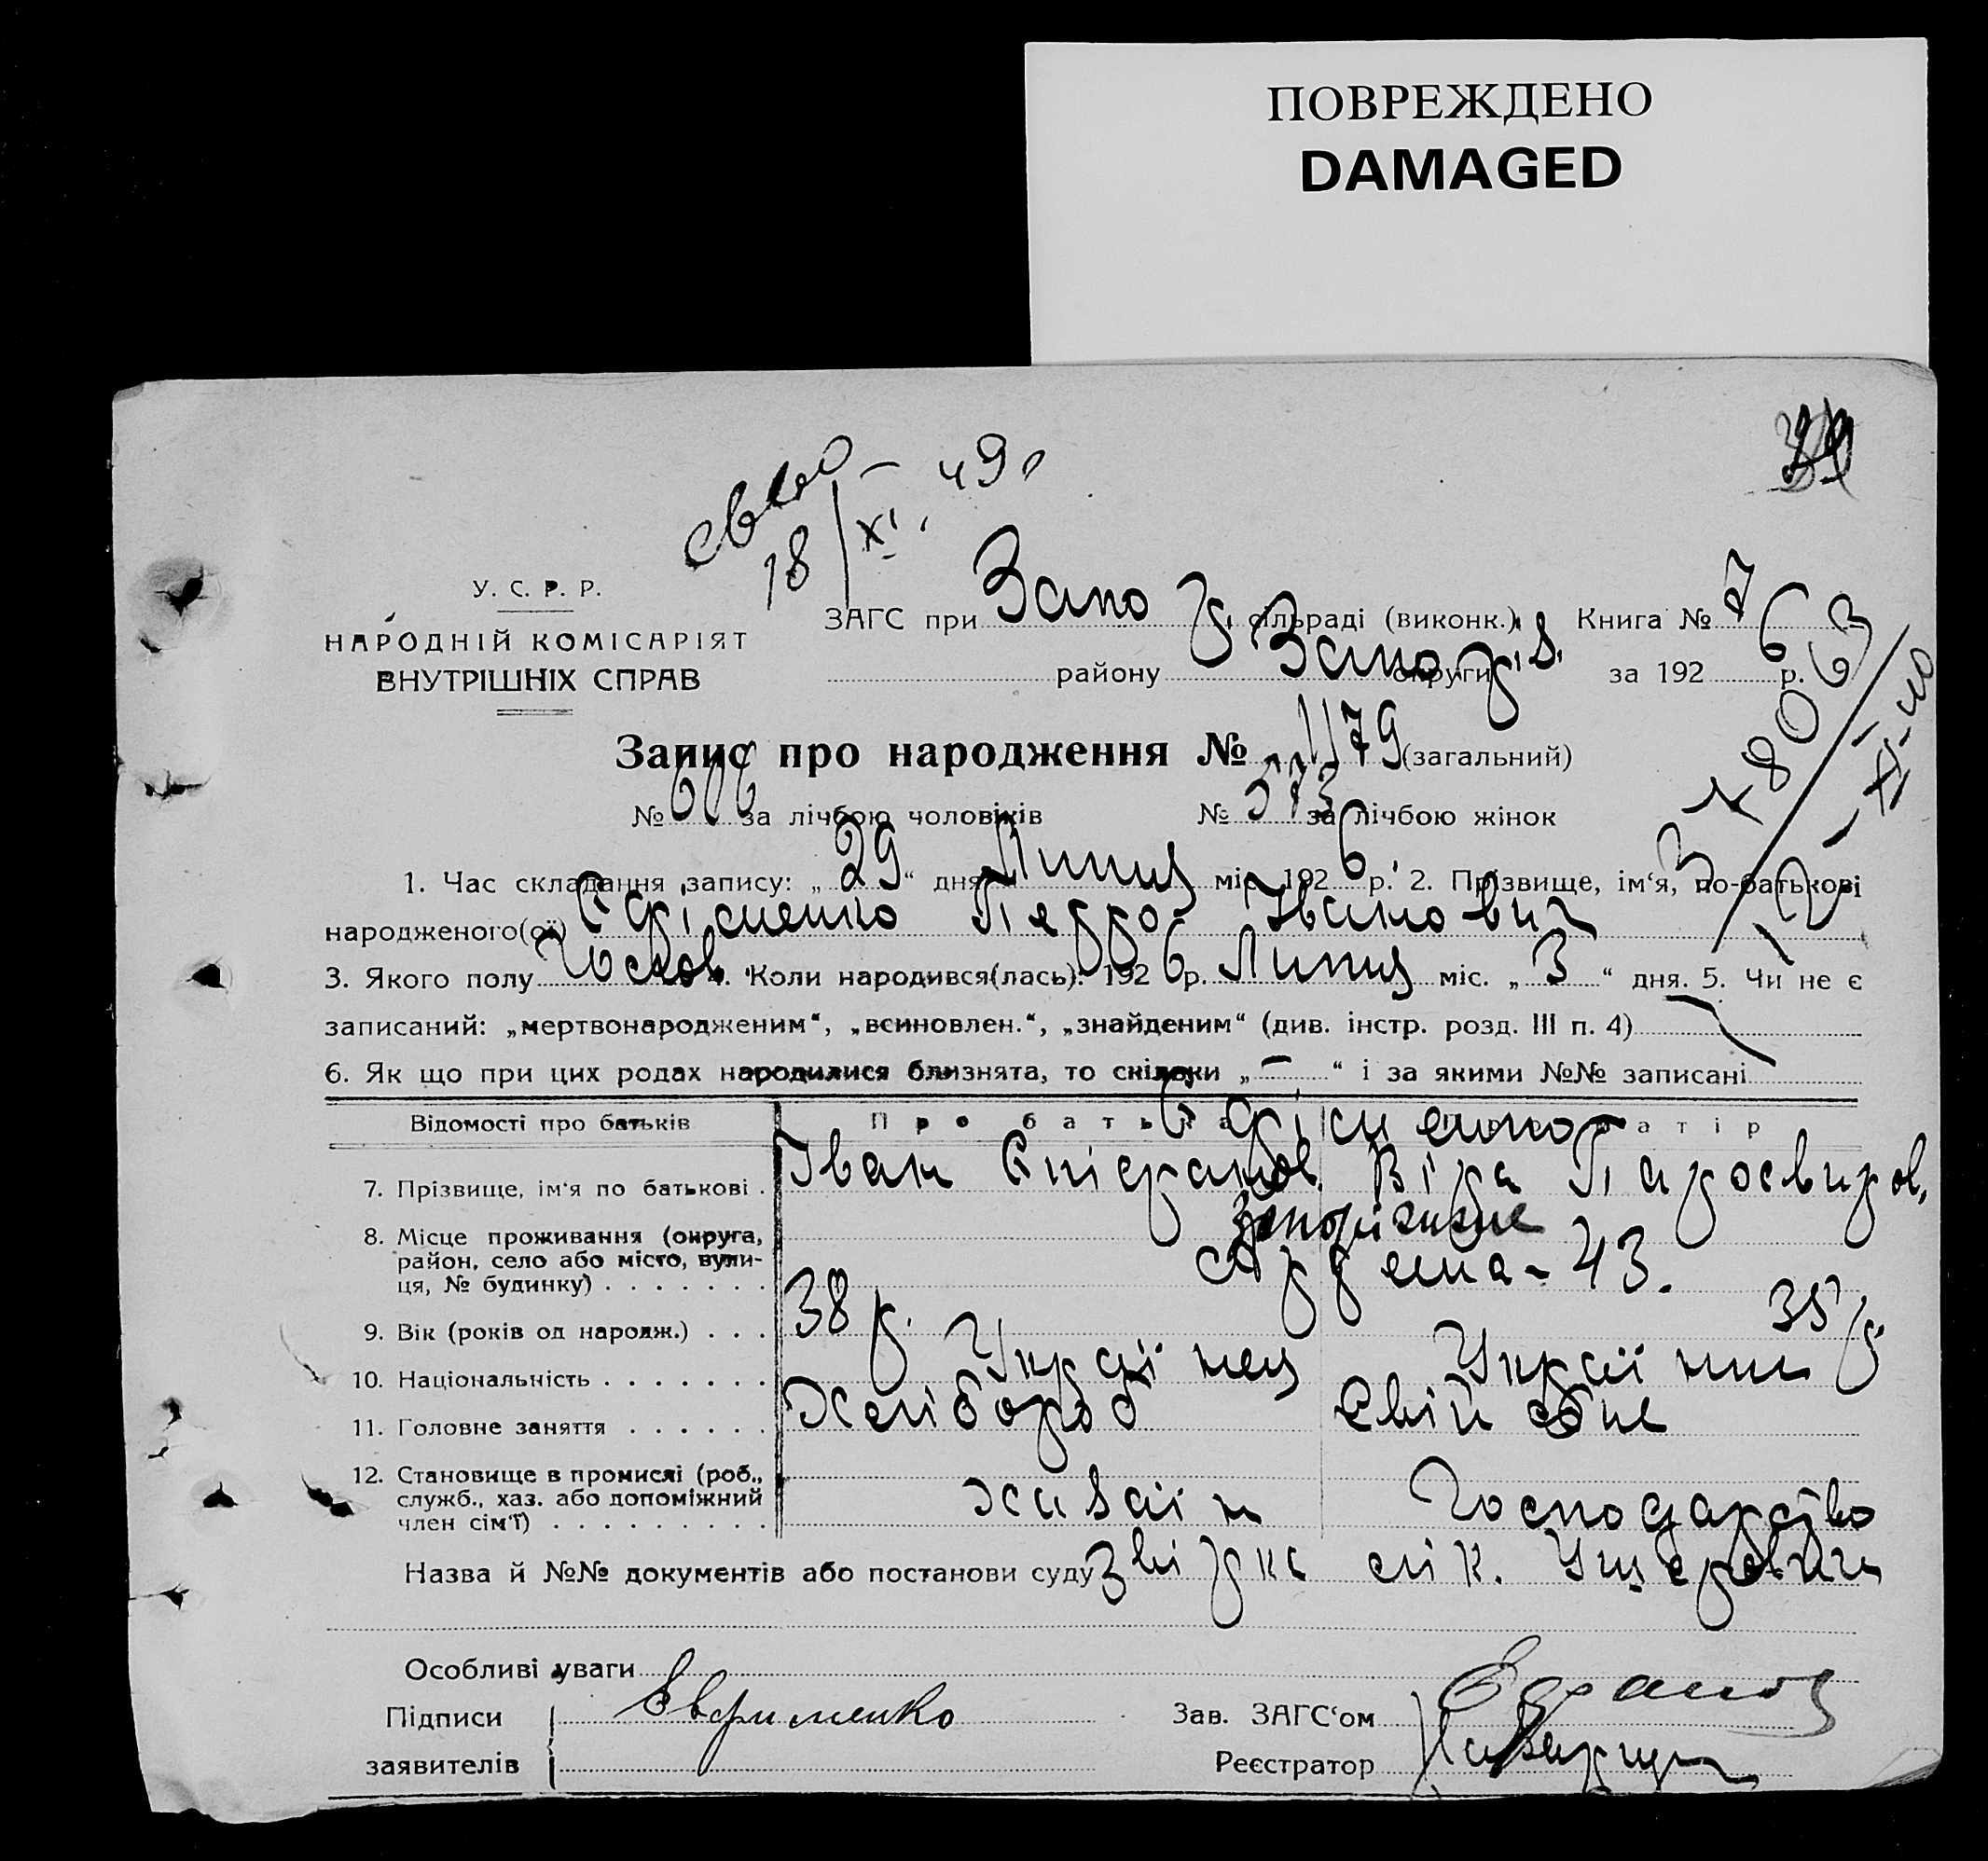 ПОВРЕЖДЕНО
DAMAGED
18/XI. 49 г
У. С. Р. Р.
НАРОДНІЙ КОМІСАРІЯТ
ВНУТРІШНІХ СПРАВ
ЗАГС при Запо сільраді (виконк.) Книга № 7
району округи за 192 6 р.
Запис про народження № 1179 (загальний)
№ 606 за лічбою чоловіків № 573 за лічбою жінок
1. Час складання запису: „ 29 “ дня Липця міс. 192 6 р. 2. Прізвище, ім‘я, по-батькові
народженого(ої) Єфіменко Педро Іванович
3. Якого полу Чолов. 4. Коли народився(лась): 192 6 р. Липця міс. „ 3 “ дня. 5. Чи не є
записаний: „мертвонародженим“, „всиновлен.“, „знайденим“ (див. інстр. розд. III п. 4)
6. Як що при цих родах народилися близнята, то скільки „ – “ і за якими №№ записані
Відомості про батьків Про батька Про матір
Єфіменко
7. Прізвище, ім‘я по батькові . Іван Віра
8. Місце проживання (округа, район, село або місто, вули-ця, № будинку) . . . . . . . Запоріжжя
43.
9. Вік (років од народж.) . . . 38 р. 35 р.
10. Національність . . . . . . . Українец Українк
11. Головне заняття . . . . . . Хлібороб Свій
12. Становище в промислі (роб., служб., хаз. або допоміжний член сім‘ї) . . . . . . . . . хазаїн Господарство
Назва й №№ документів або постанови суду
Особливі уваги
Підписи Евфименко Зав. ЗАГС‘ом
заявителів Реєстратор